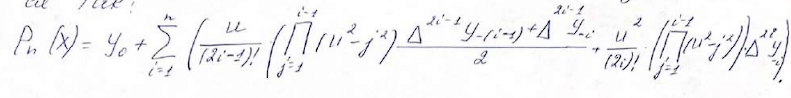 P_n(x) = y_0 + \sum_{i=1}^{n} ( \frac{u}{(2i-1)!} ( \prod_{j=1}^{i-1} (u^2-j^2) \frac{\Delta^{2i-1} y_{-(i-1)} + \Delta^{2i-1} y_{-i}}{2} + \frac{u^2}{(2i)!} ( \prod_{j=1}^{i-1} (u^2-j^2) ) \Delta^{2i} y_{-i} ).